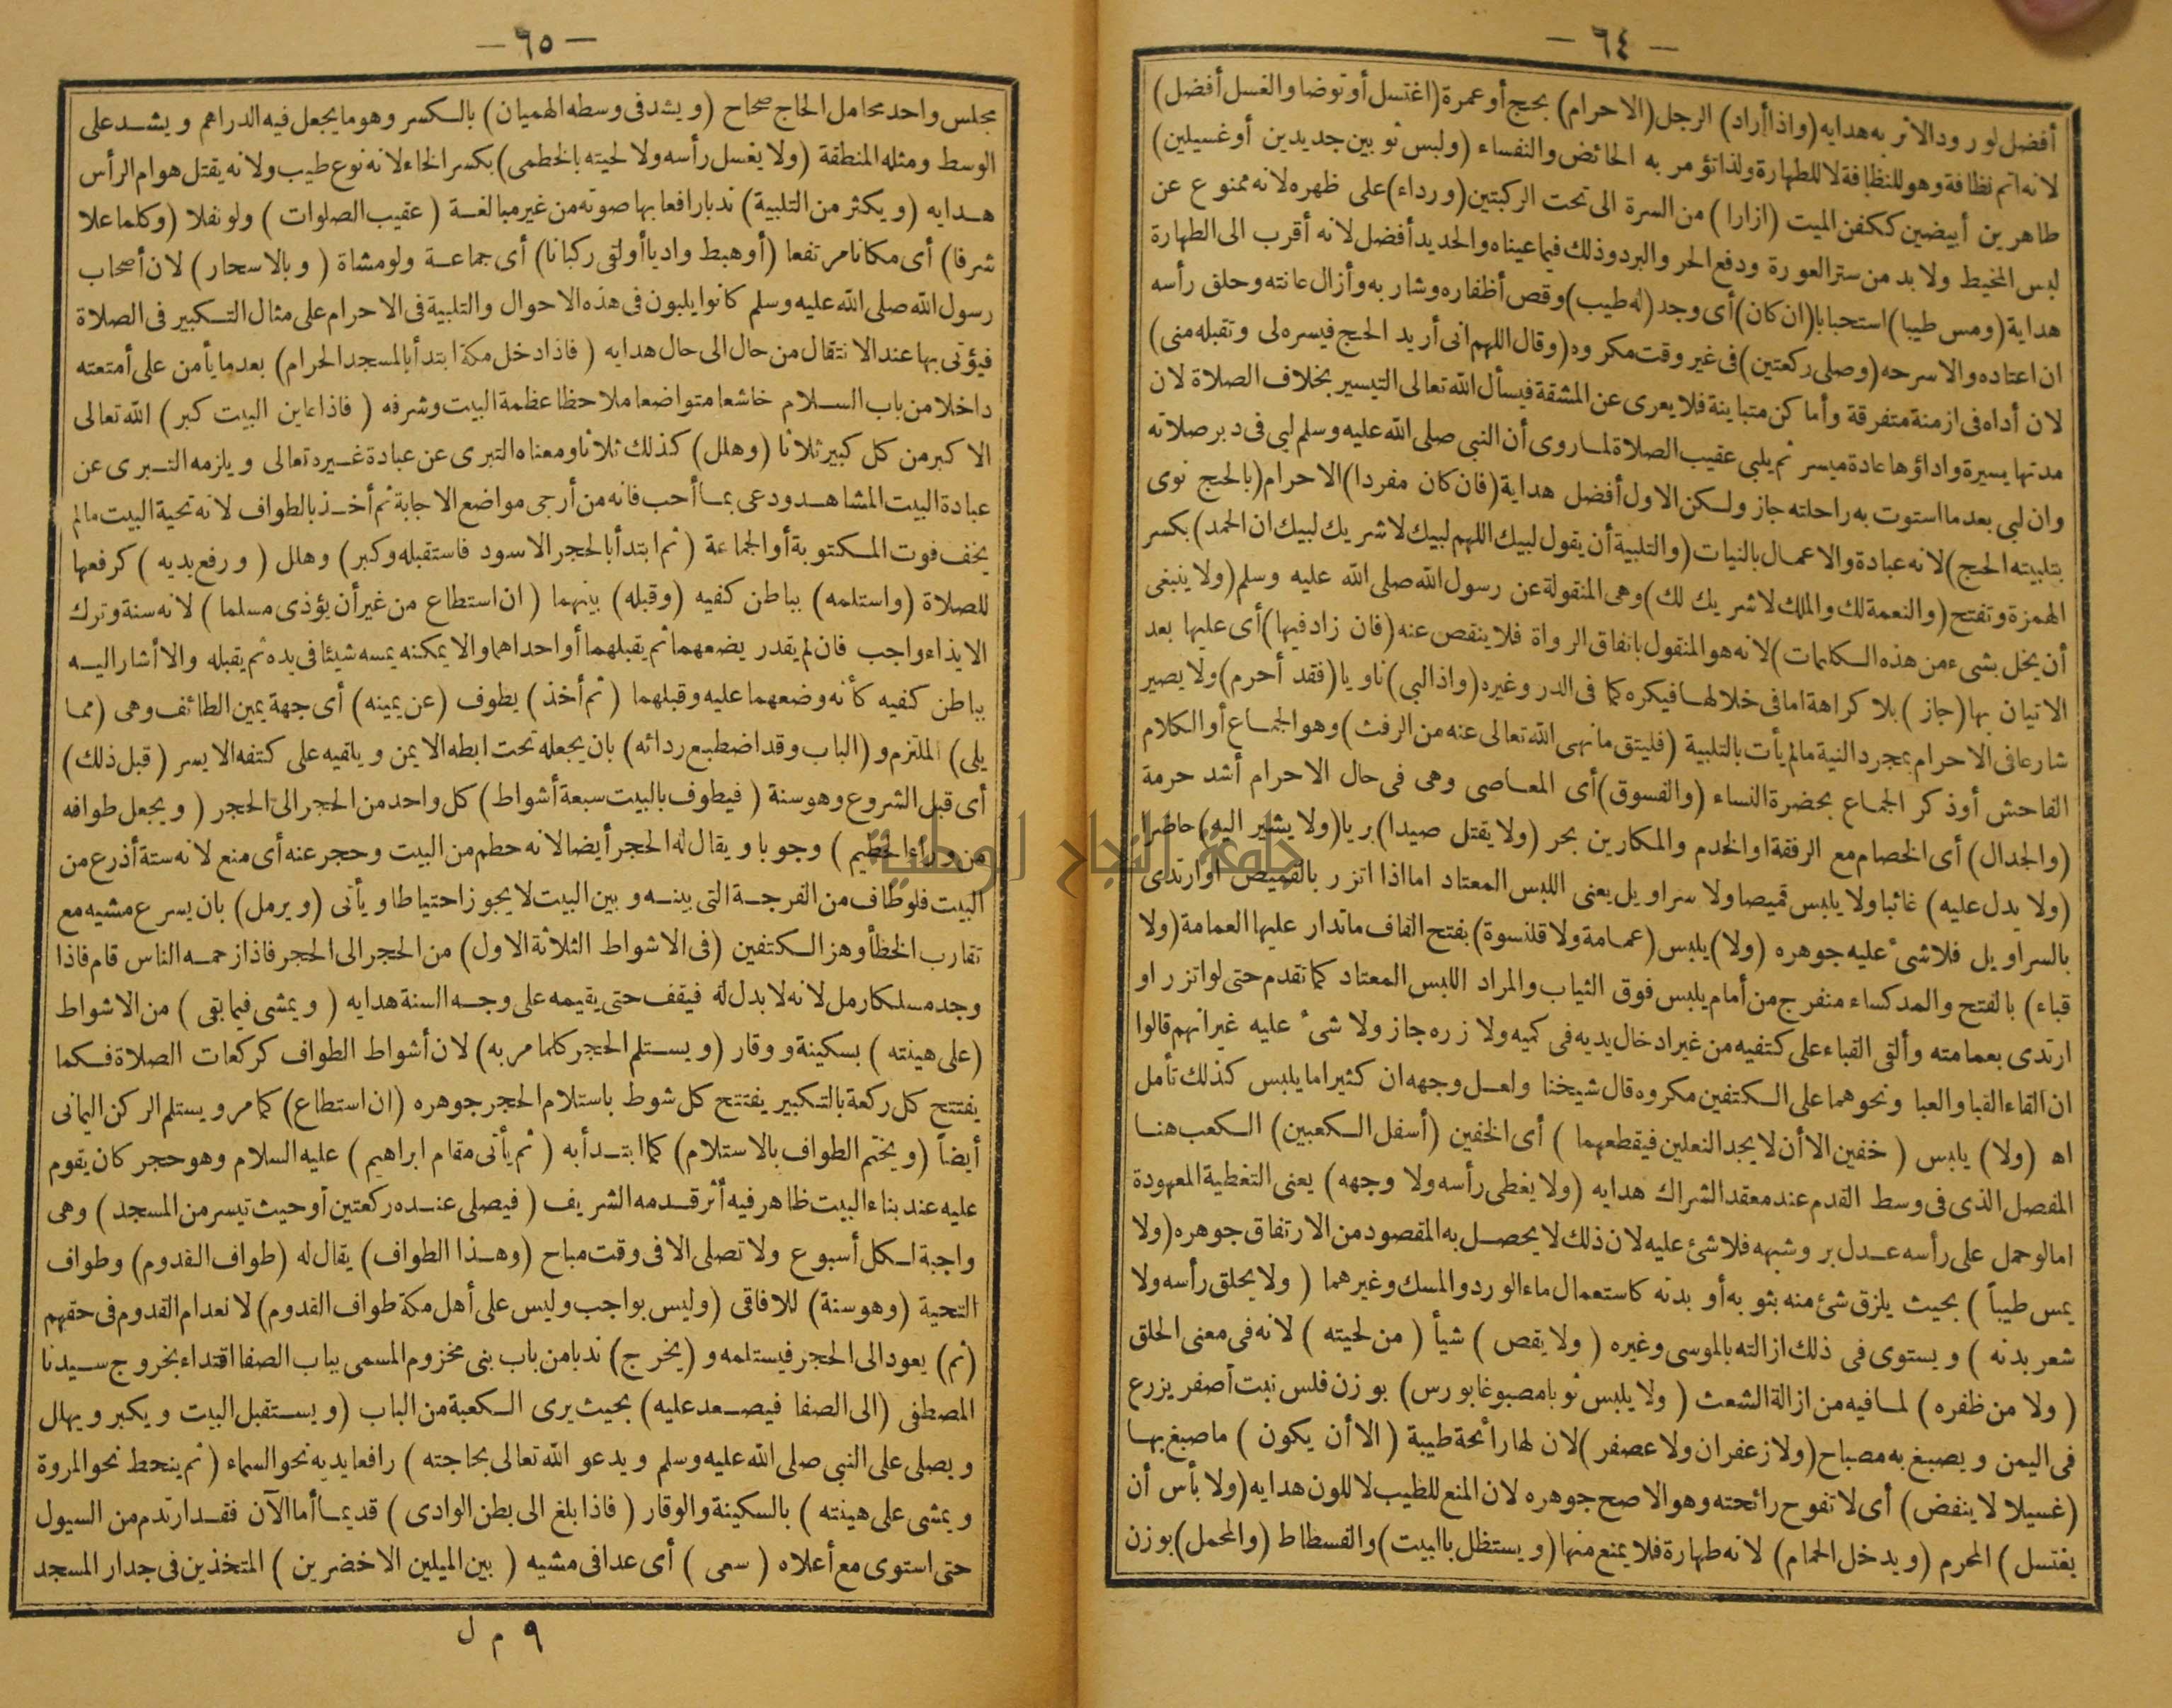 — ٦٤ —
أفضل لورود الاثر به هدايه (واذا أراد) الرجل (الاحرام) بحج أو عمرة (اغتسل أو توضا والغسل أفضل)
لانه اتم نظافة وهو للنظافة لا للطهارة ولذا تؤمر به الحائض والنفساء (ولبس ثوبين جديدين أو غسيلين)
طاهرين أبيضين ككفن الميت (ازارا) من السرة الى تحت الركبتين (ورداء) على ظهره لانه ممنوع عن
لبس المخيط ولا بد من ستر العورة ودفع الحر والبرد وذلك فيما عيناه والجديد أفضل لانه أقرب الى الطهارة
هداية (ومس طيبا) استحبابا (ان كان) أى وجد (له طيب) وقص أظفاره وشاربه وأزال عانته وحلق رأسه
ان اعتاده والا سرحه (وصلى ركعتين) فى غير وقت مكروه (وقال اللهم انى أريد الحج فيسره لى وتقبله منى)
لان أداه فى ازمنة متفرقة وأماكن متباينة فلا يعرى عن المشقة فيسأل الله تعالى التيسير بخلاف الصلاة لان
مدتها يسيرة واداؤها عادة ميسر ثم يلبى عقيب الصلاة لما روى أن النبى صلى الله عليه وسلم لبى فى دبر صلاته
وان لبى بعد ما استوت به راحلته جاز ولكن الاول أفضل هداية (فان كان مفردا) الاحرام (بالحج نوى
بتلبيته الحج) لانه عبادة والاعمال بالنيات (والتلبية أن يقول لبيك اللهم لبيك لا شريك لبيك ان الحمد) بكسر
الهمزة وتفتح (والنعمة لك والملك لا شريك لك) وهى المنقولة عن رسول الله صلى الله عليه وسلم (ولا ينبغى
أن يخل بشىء من هذه الكلمات) لانه هو المنقول باتفاق الرواة فلا ينقص عنه (فان زاد فيها) أى عليها بعد
الاتيان بها (جاز) بلا كراهة اما فى خلالها فيكره كما فى الدر وغيره (واذا لبى) ناويا (فقد أحرم) ولا يصير
شارعا فى الاحرام بمجرد النية ما لم يأت بالتلبية (فليتق ما نهى الله تعالى عنه من الرفث) وهو الجماع أو الكلام
الفاحش أو ذكر الجماع بحضرة النساء (والفسوق) أى المعاصى وهى فى حال الاحرام أشد حرمة
(والجدال) أى الخصام مع الرفقة او الخدم والمكارين بحر (ولا يقتل صيدا) بريا (ولا يشير اليه) حاضرا
(ولا يدل عليه) غائبا ولا يلبس قميصا ولا سراويل يعنى اللبس المعتاد اما اذا اتزر بالقميص أو ارتدى
بالسراويل فلا شىء عليه جوهره (ولا) يلبس (عمامة ولا قلنسوة) بفتح القاف ما تدار عليها العمامة (ولا
قباء) بالفتح والمد كساء منفرج من أمام يلبس فوق الثياب والمراد اللبس المعتاد كما تقدم حتى لو اتزر او
ارتدى بعمامته وألقى القباء على كتفيه من غير ادخال يديه فى كميه ولا زره جاز ولا شىء عليه غير انهم قالوا
ان القاء القبا والعبا ونحوهما على الكتفين مكروه قال شيخنا ولعل وجهه ان كثيرا ما يلبس كذلك تأمل
اه (ولا) يلبس (خفين الا أن لا يجد النعلين فيقطعهما) أى الخفين (أسفل الكعبين) الكعب هنا
المفصل الذى فى وسط القدم عند معقد الشراك هدايه (ولا يغطى رأسه ولا وجهه) يعنى التغطية المعهودة
اما لو حمل على رأسه عدل بر وشبهه فلا شئ عليه لان ذلك لا يحصل به المقصود من الارتفاق جوهره (ولا
يمس طيباً) بحيث يلزق شئ منه بثوبه أو بدنه كاستعمال ماء الورد والمسك وغيرهما (ولا يحلق رأسه ولا
شعر بدنه) ويستوى فى ذلك ازالته بالموسى وغيره (ولا يقص) شيأ (من لحيته) لانه فى معنى الحلق
(ولا من ظفره) لما فيه من ازالة الشعث (ولا يلبس ثوبا مصبوغا بورس) بوزن فلس نبت أصفر يزرع
فى اليمن ويصبغ به مصباح (ولا زعفران ولا عصفر) لان لها رأئحة طيبة (الا أن يكون) ما صبغ بها
(غسيلا لا ينفض) أى لا تفوح رائحته وهو الاصح جوهره لان المنع للطيب لا للون هدايه (ولا بأس أن
يغتسل) المحرم (ويدخل الحمام) لانه طهارة فلا يمنع منها (ويستظل بالبيت) والفسطاط (والمحمل) بوزن
— ٦٥ —
مجلس واحد محامل الحاج صحاح (ويشد فى وسطه الهميان) بالكسر وهو ما يجعل فيه الدراهم ويشد على
الوسط ومثله المنطقة (ولا يغسل رأسه ولا لحيته بالخطمى) بكسر الخاء لانه نوع طيب ولانه يقتل هوام الرأس
هدايه (ويكثر من التلبية) ندبا رافعا بها صوته من غير مبالغة (عقيب الصلوات) ولو نفلا (وكلما علا
شرفا) أى مكانا مرتفعا (أو هبط واديا أو لقى ركبانا) أى جماعة ولو مشاة (وبالاسحار) لان أصحاب
رسول الله صلى الله عليه وسلم كانوا يلبون فى هذه الاحوال والتلبية فى الاحرام على مثال التكبير فى الصلاة
فيؤتى بها عند الانتقال من حال الى حال هدايه (فاذا دخل مكة ابتدأ بالمسجد الحرام) بعد ما يأمن على أمتعته
داخلا من باب السلام خاشعا متواضعا ملاحظا عظمة البيت وشرفه (فاذا عاين البيت كبر) الله تعالى
الاكبر من كل كبير ثلاثا (وهلل) كذلك ثلاثا ومعناه التبرى عن عبادة غيره تعالى ويلزمه التبرى عن
عبادة البيت المشاهد ودعى بما أحب فانه من أرجى مواضع الاجابة ثم أخذ بالطواف لانه تحية البيت ما لم
يخف فوت المكتوبة أو الجماعة (ثم ابتدأ بالحجر الاسود فاستقبله وكبر) وهلل (ورفع يديه) كرفعها
للصلاة (واستلمه) بباطن كفيه (وقبله) بينهما (ان استطاع من غير أن يؤذى مسلما) لانه سنة وترك
الايذاء واجب فان لم يقدر يضعهما ثم يقبلهما أو احداهما والا يمكنه يمسه شيئا فى يده ثم يقبله والا أشار اليه
بباطن كفيه كأنه وضعهما عليه وقبلهما (ثم أخذ) يطوف (عن يمينه) أى جهة يمين الطائف وهى (مما
يلى) الملتزم و(الباب وقد اضطبع ردائه) بان يجعله تحت ابطه الايمن ويلقيه على كتفه الايسر (قبل ذلك)
أى قبل الشروع وهو سنة (فيطوف بالبيت سبعة أشواط) كل واحد من الحجر الى الحجر (ويجعل طوافه
من وراء الحطيم) وجوبا ويقال له الحجر أيضا لانه حطم من البيت وحجر عنه أى منع لانه ستة أذرع من
البيت فلو طاف من الفرجة التى بينه وبين البيت لا يجوز احتياطا ويأتى (ويرمل) بان يسرع مشيه مع
تقارب الخطأ وهز الكتفين (فى الاشواط الثلاثة الاول) من الحجر الى الحجر فاذا زحمه الناس قام فاذا
وجد مسلكا رمل لانه لا بدل له فيقف حتى يقيمه على وجه السنة هدايه (ويمشى فيما بقى) من الاشواط
(على هينته) بسكينة ووقار (ويستلم الحجر كلما مر به) لان أشواط الطواف كركعات الصلاة فكما
يفتتح كل ركعة بالتكبير يفتتح كل شوط باستلام الحجر جوهره (ان استطاع) كما مر ويستلم الركن اليمانى
أيضاً (ويختم الطواف بالاستلام) كما ابتدأ به (ثم يأتى مقام ابراهيم) عليه السلام وهو حجر كان يقوم
عليه عند بناء البيت ظاهر فيه أثر قدمه الشريف (فيصلى عنده ركعتين أو حيث تيسر من المسجد) وهى
واجبة لكل أسبوع ولا تصلى الا فى وقت مباح (وهذا الطواف) يقال له (طواف القدوم) وطواف
التحية (وهو سنة) للافاقى (وليس بواجب وليس على أهل مكة طواف القدوم) لانعدام القدوم فى حقهم
(ثم) يعود الى الحجر فيستلمه و(يخرج) ندبا من باب بنى مخزوم المسمى بباب الصفا اقتداء بخروج سيدنا
المصطفى (الى الصفا فيصعد عليه) بحيث يرى الكعبة من الباب (ويستقبل البيت ويكبر ويهلل
ويصلى على النبى صلى الله عليه وسلم ويدعو الله تعالى بحاجته) رافعا يديه نحو السماء (ثم ينحط نحو المروة
ويمشى على هينته) بالسكينة والوقار (فاذا بلغ الى بطن الوادى) قديما أما الآن فقد ارتدم من السيول
حتى استوى مع أعلاه (سعى) أى عدا فى مشيه (بين الميلين الاخضرين) المتخذين فى جدار المسجد
٩ م ل
جامعة النجاح الوطنية